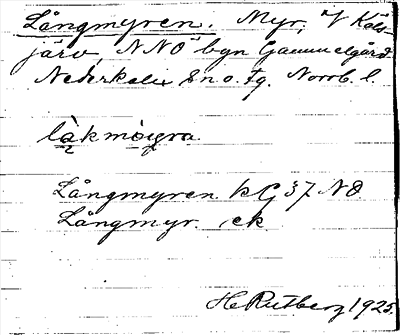 Långmyren. Myr, V Käls-
järv, NNO bgn Gammelgård
Nederkalix sn o. tg. Norrb. l.
låkmọi̯ra
Långmyren kG 37 NO
Långmyr. ek
H. Rutberg 1925.